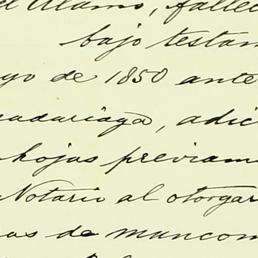 el Alamo, fallec
bajo testam
yo de 1850 ante
adariaga, adic
hojas previam
Notario al otorgar
as de mancom